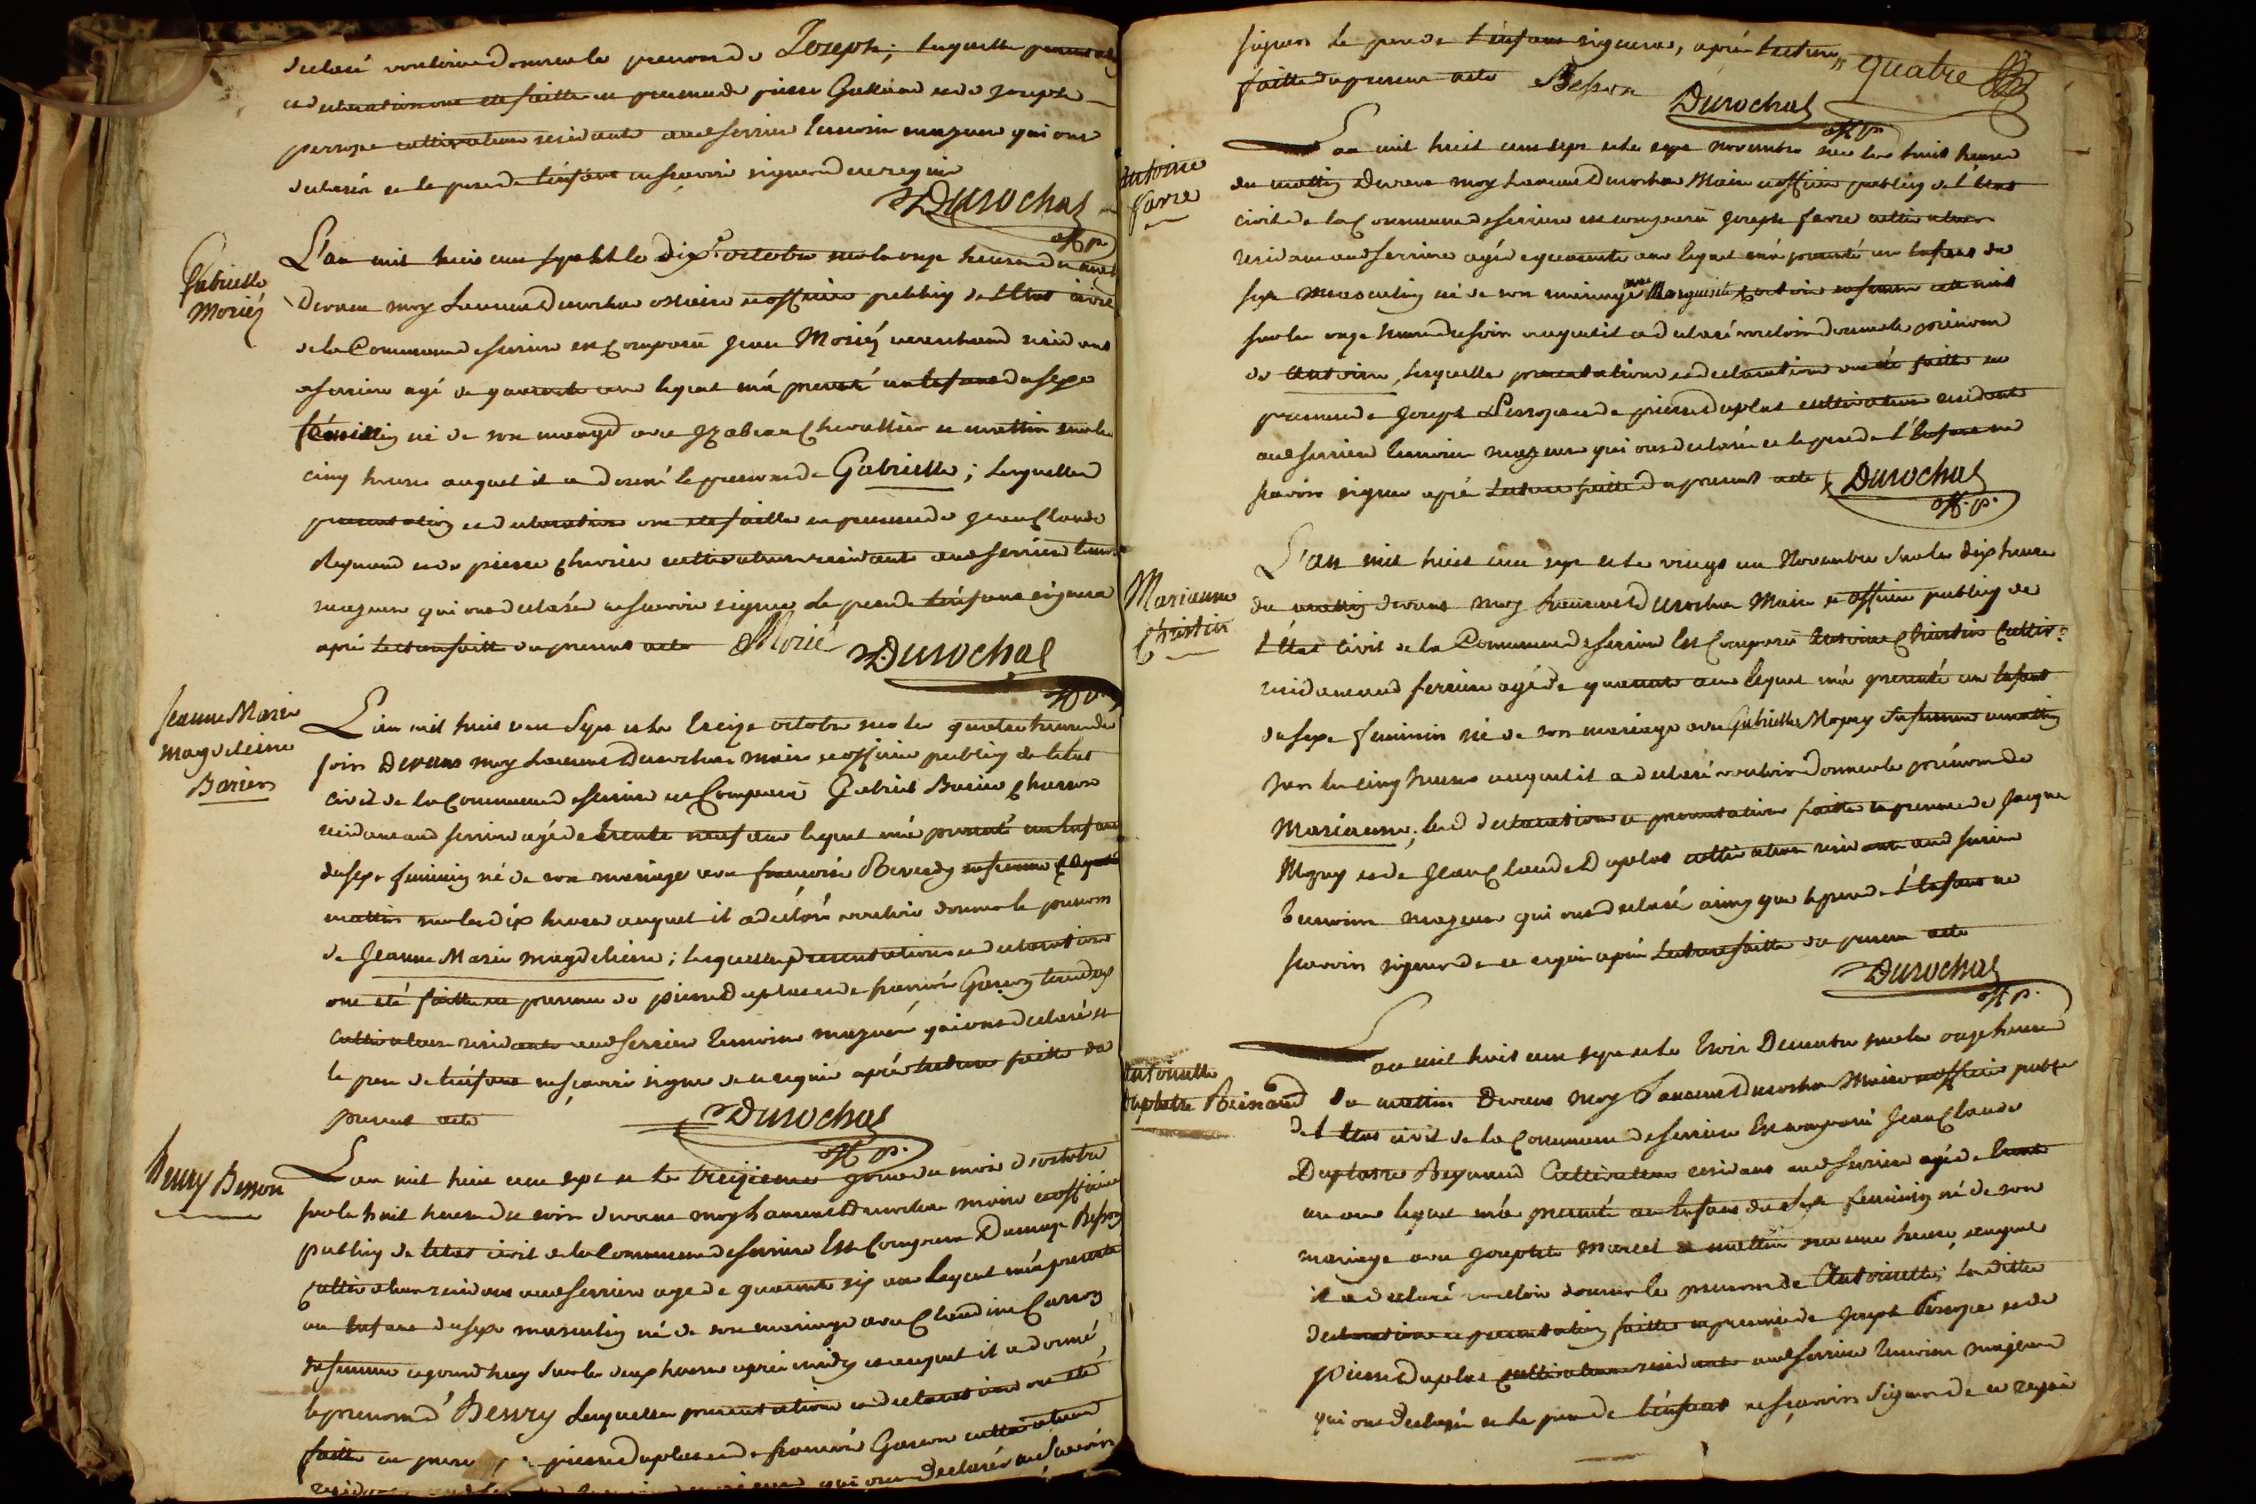 declaré vouloir donner le prenom de Joseph; laquelle presentation
et declaration ont été faitte en presence de pierre et de Joseph
perrope cultivateurs residants aud serriere temoins majeurs qui ont
declaré et le pere de l'énfant ne sçavoir signer de ce requis
Durochat
off. p.
Gabrielle
Moriéz
L'an mil huit cent sept et le dix octobre sur le onze heures du matin
devant moy Laurent Durochat maire et officier publiq de l'Etat civil
de la Commune de serriere est Comparû Jean Moriéz marchand residant
a serriere agé de quarente ans lequel m'a presenté un Enfant du sexe
féminin né de son mariage avec Izabeau Chevallier ce mattin sur les
cinq heures auquel il a donné le prenom de Gabrielle; lesquelles
presentation et declaration ont eté faitte en presence de Jean Claude
Reynaud et de pierre cultivateurs residants aud serriere temoins
majeurs qui ont declaré ne sçavoir signer le pere de l'énfant signera
après lecture faitte du present acte Morié Durochat
off. p.
Jeanne Marie
magdeleine
Barier
L'an mil huit cent Sept et le treize octobre sur les quatre heures du
soir Devant moy Laurent Durochat maire et officier publiq de l'etat
civil de la Commune de serriere est Comparû Gabriel Barier
residant aud serriere agé de trente neuf ans lequel m'a presenté un Enfant
du sexe feminin né de son mariage avec francoise Reverdy sa femme
mattin sur les dix heures auquel il a déclaré vouloir donner le prenom
de Jeanne Marie magdeleine; lesquelles presentation et declaration
ont été faitte en presence de pierre Duplas et de francois Garon
Cultivateurs residants aud serriere temoins majeurs qui ont declaré et
le pere de l'énfant ne sçavoir signer de ce requis après lecture faitte du
present acte Durochat
off. p.
henry Besson
L'an mil huit cent sept et le treizieme jour du mois d'octobre
sur le huit heures du soir devant moy Laurent Durochat maire et officier
publiq de l'etat civil de la Commune de serriere Est Comparu Besson
Cultivateur residant aud serriere agé de quarente six ans lequel m'a presenté
un Enfant du sexe masculin né de son mariage avec Claudine Carron
sa femme cejourd'huy sur les deux heures après midy et auquel il a donné
le prenom d' Henry lesquelles presentation et declaration ont été
faitte en presence pierre Duplas et de francois Garon cultivateurs
qui ont declaré ne sçavoir
signer le pere de l'énfant signeras, après lecture quatre
faitte du present acte Besson Durochat
off. p.
Antoine
farre
L'an mil huit cent sept et le sept novembre sur les huit heures
du mattin Devant moy Laurent Durochat Maire et officier publiq de l'Etat
civil de la Commune de serriere est comparû Joseph farre cultivateur
residant aud serriere agé de quarente ans lequel m'a presenté un Enfant du
sexe masculin né de son mariage avec Marguerite sa femme cette nuit
sur les onze heures du soir auquel il a declaré vouloir donner le prénom
de Antoine, lesquelles presentation et declaration ont été faitte en
presence de Joseph Perrope et de pierre Duplas cultivateurs residants
aud serriere temoins majeurs qui ont declaré et le pere de l'Enfant ne
sçavoir signer après Lecture faitte du present acte Durochat
off. p.
Marianne
Christin
L'an mil huit cent sept et le vingt un Novembre Sur les dix heures
du mattin devant moy Laurent Durochat Maire et officier publiq de
l'Etat Civil de la Commune de serriere Est Comparû Antoine Christin Cultiv.r
residant aud serriere agé de quarente ans lequel m'a presenté un Enfant
du sexe feminin né de son mariage avec Gabrielle Mogny sa femme ce mattin
sur les cinq heures auquel il a declaré vouloir Donner le prénom de
Marianne; les d declaration et presentation faitte en presence de Jacque
Mogny et de Jean Claude Duplas cultivateurs residants aud serriere
temoins majeurs qui ont declaré ainsy que le pere de l'Enfant ne
sçavoir signer de ce requis après Lecture faitte du present acte
Durochat
off. p.
Antoinette
Duplatre Reinaud
L'an mil huit cent sept et le trois Decembre sur les onze heures
du mattin Devant moy Laurent Durochat Maire et officier public
de l'Etat civil de la Commune de serriere Est comparû Jean Claude
Duplatre Reynaud Cultivateur residant aud serriere agé de trente
un ans lequel m'a presenté un Enfant du Sexe feminin né de son
mariage avec Josephte Marcel ce mattin sur une heure, auquel
il a declaré vouloir donner le prenom de Antoinette; Laditte
declaration et presentation faitte en presence de Joseph Perrope et de
Pierre Duplas Cultivateurs residants aud serriere temoins majeurs
qui ont declaré et le pere de l'énfant ne sçavoir Signer de ce requis